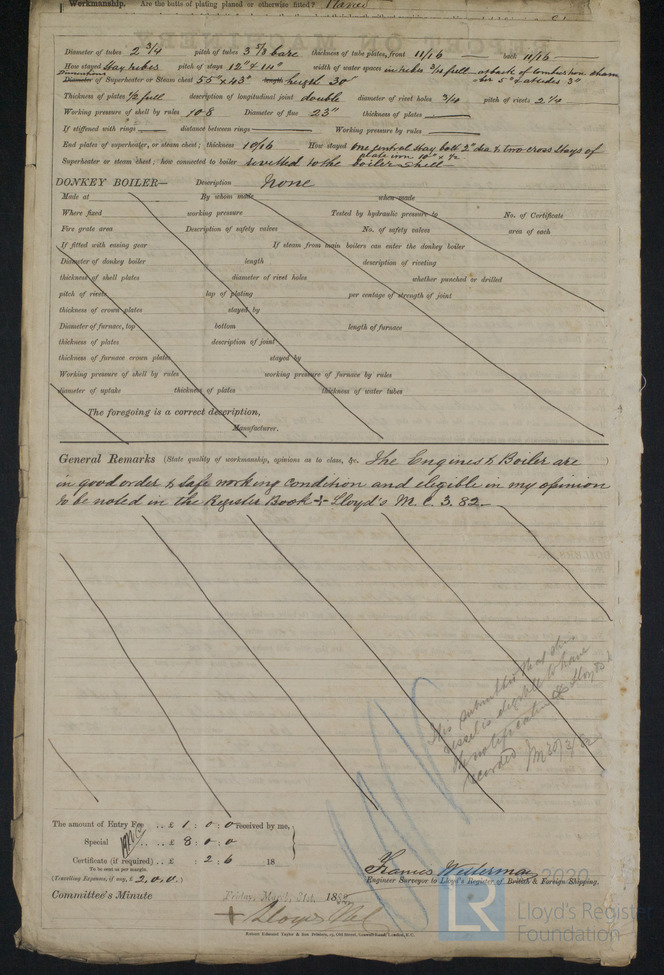 Workmanship. Are the butts of plating planed or otherwise fitted? Planed
Diameter of tubes 2 3/4 pitch of tubes 3 7/8 bare thickness of tube plates, front 11/16 back 11/16
How stayed Stay tubes pitch of stays 12" × 14" width of water spaces
Diameter of Superheater or Steam chest 55" × 43" length height 30"
Thickness of plates 1/2 full description of longitudinal joint double diameter of rivet holes 3/4 pitch of rivets 2 1/4
Working pressure of shell by rules 108 Diameter of flue 23" thickness of plates
If stiffened with rings distance between rings Working pressure by rules
End plates of superheater, or steam chest; thickness 10/16 How stayed one central stay bolt 2" dia & two cross stays of
plate iron 10" × 1/2
Superheater or steam chest; how connected to boiler rivetted to the boiler shell
DONKEY BOILER— Description None
Made at By whom made when made
Where fixed working pressure Tested by hydraulic pressure to No. of Certificate
Fire grate area Description of safety valves No. of safety valves area of each
If fitted with easing gear If steam from main boilers can enter the donkey boiler
Diameter of donkey boiler length description of riveting
thickness of shell plates diameter of rivet holes whether punched or drilled
pitch of rivets lap of plating per centage of strength of joint
thickness of crown plates stayed by
Diameter of furnace, top bottom length of furnace
thickness of plates description of joint
thickness of furnace crown plates stayed by
Working pressure of shell by rules working pressure of furnace by rules
diameter of uptake thickness of plates thickness of water tubes
The foregoing is a correct description,
Manufacturer.
General Remarks (State quality of workmanship, opinions as to class, &c. The Engines & Boiler are
in good order & safe working condition and eligible in my opinion
to be noted in the Register Book + Lloyd's M.C. 3.82
It is submitted that this
vessel is eligible to have
the notification Lloyds
recorded
The amount of Entry Fee .. £ 1 : 0 : 0 received by me,
Special .. £ 8 : 0 : 0
Certificate (if required) .. £ : 2 : 6 18
To be sent as per margin.
(Travelling Expenses, if any, £ 2.0.0.)
Engineer Surveyor to Lloyd's Register of British & Foreign Shipping.
Committee's Minute
Lloyd's Register
Foundation
2020